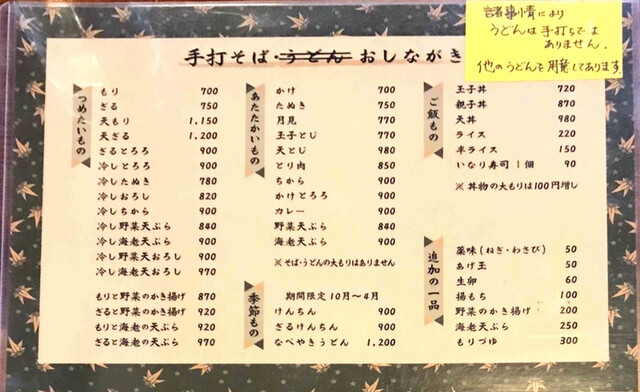 諸事情により
うどんは手打ちでは
ありません。
他のうどんを用意してあります。
手打そば・うどん おしながき
つめたいもの
もり 700
ざる 750
天もり 1,150
天ざる 1,200
ざるとろろ 900
冷しとろろ 900
冷したぬき 780
冷しおろし 820
冷しちから 900
冷し野菜天ぷら 840
冷し海老天ぷら 900
冷し野菜天おろし 900
冷し海老天おろし 970
もりと野菜のかき揚げ 870
ざると野菜のかき揚げ 920
もりと海老の天ぷら 920
ざると海老の天ぷら 970
あたたかいもの
かけ 700
たぬき 750
月見 770
玉子とじ 770
天とじ 980
とり肉 850
ちから 900
かけとろろ 900
カレー 900
野菜天ぷら 840
海老天ぷら 900
※そば・うどんの大もりはありません
季節もの
期間限定 10月〜4月
けんちん 900
ざるけんちん 900
なべやきうどん 1,200
ご飯もの
玉子丼 720
親子丼 870
天丼 980
ライス 220
半ライス 150
いなり寿司1個 90
※丼物の大もりは100円増し
追加の一品
薬味(ねぎ・わさび) 50
あげ玉 50
生卵 60
揚もち 100
野菜のかき揚げ 200
海老天ぷら 250
もりづゆ 300